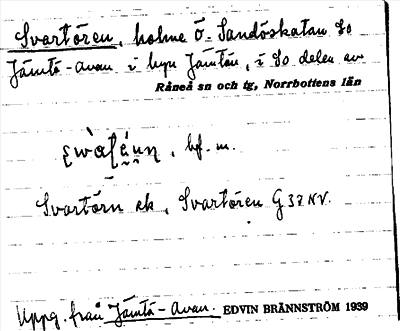 Svartören, holme Ö. Sandöskatan So
Jämtö-avan i byn Jämtön, i So delen av
Råneå sn och tg, Norrbottens län
bf. m.
Svartörn ek, Svartören G 37 NV.
Uppg. från Jämtö-avan. EDVIN BRÄNNSTRÖM 1939